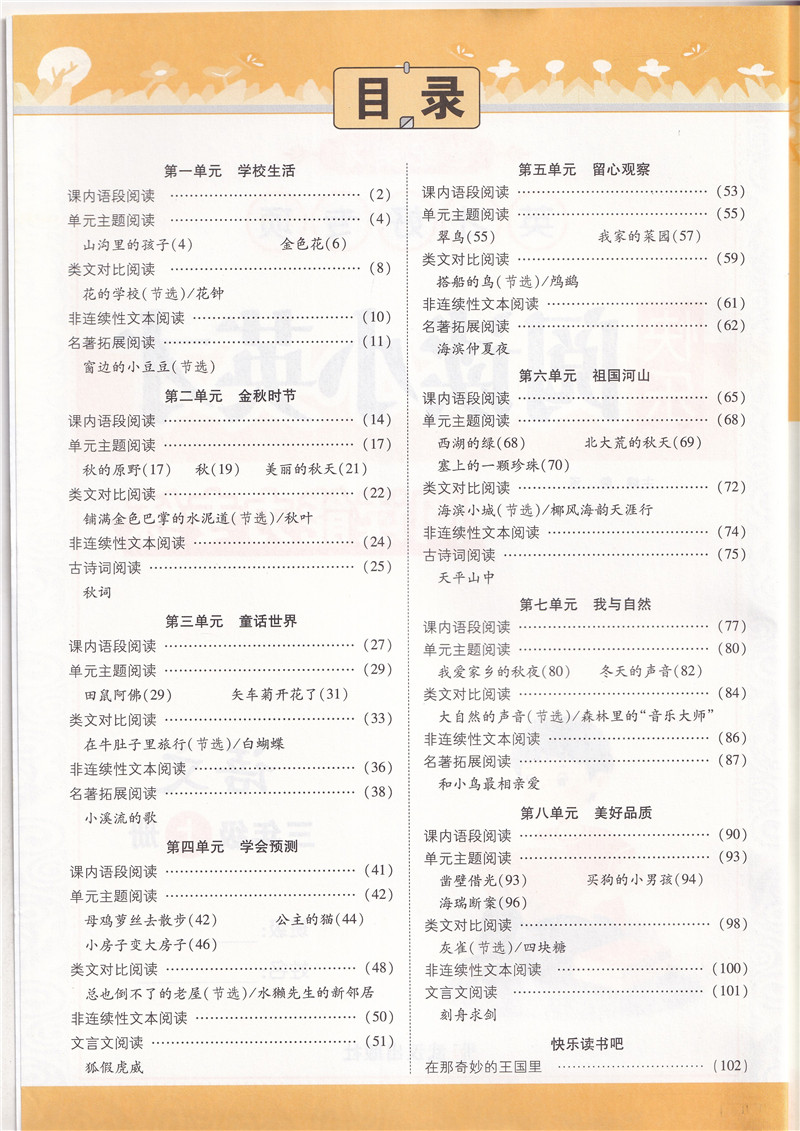 目录
第一单元 学校生活
课内语段阅读 …………………………… (2)
单元主题阅读 …………………………… (4)
山沟里的孩子(4) 金色花(6)
类文对比阅读 …………………………… (8)
花的学校(节选)/花钟
非连续性文本阅读 …………………………… (10)
名著拓展阅读 …………………………… (11)
窗边的小豆豆(节选)
第二单元 金秋时节
课内语段阅读 …………………………… (14)
单元主题阅读 …………………………… (17)
秋的原野(17) 秋(19) 美丽的秋天(21)
类文对比阅读 …………………………… (22)
铺满金色巴掌的水泥道(节选)/秋叶
非连续性文本阅读 …………………………… (24)
古诗词阅读 …………………………… (25)
秋词
第三单元 童话世界
课内语段阅读 …………………………… (27)
单元主题阅读 …………………………… (29)
田鼠阿佛(29) 矢车菊开花了(31)
类文对比阅读 …………………………… (33)
在牛肚子里旅行(节选)/白蝴蝶
非连续性文本阅读 …………………………… (36)
名著拓展阅读 …………………………… (38)
小溪流的歌
第四单元 学会预测
课内语段阅读 …………………………… (41)
单元主题阅读 …………………………… (42)
母鸡萝丝去散步(42) 公主的猫(44)
小房子变大房子(46)
类文对比阅读 …………………………… (48)
总也倒不了的老屋(节选)/水獭先生的新邻居
非连续性文本阅读 …………………………… (50)
文言文阅读 …………………………… (51)
狐假虎威
第五单元 留心观察
课内语段阅读 …………………………… (53)
单元主题阅读 …………………………… (55)
翠鸟(55) 我家的菜园(57)
类文对比阅读 …………………………… (59)
搭船的鸟(节选)/鸬鹚
非连续性文本阅读 …………………………… (61)
名著拓展阅读 …………………………… (62)
海滨仲夏夜
第六单元 祖国河山
课内语段阅读 …………………………… (65)
单元主题阅读 …………………………… (68)
西湖的绿(68) 北大荒的秋天(69)
塞上的一颗珍珠(70)
类文对比阅读 …………………………… (72)
海滨小城(节选)/椰风海韵天涯行
非连续性文本阅读 …………………………… (74)
古诗词阅读 …………………………… (75)
天平山中
第七单元 我与自然
课内语段阅读 …………………………… (77)
单元主题阅读 …………………………… (80)
我爱家乡的秋夜(80) 冬天的声音(82)
类文对比阅读 …………………………… (84)
大自然的声音(节选)/森林里的“音乐大师”
非连续性文本阅读 …………………………… (86)
名著拓展阅读 …………………………… (87)
和小鸟最相亲爱
第八单元 美好品质
课内语段阅读 …………………………… (90)
单元主题阅读 …………………………… (93)
凿壁借光(93) 买狗的小男孩(94)
海瑞断案(96)
类文对比阅读 …………………………… (98)
灰雀(节选)/四块糖
非连续性文本阅读 …………………………… (100)
文言文阅读 …………………………… (101)
刻舟求剑
快乐读书吧
在那奇妙的王国里 …………………………… (102)